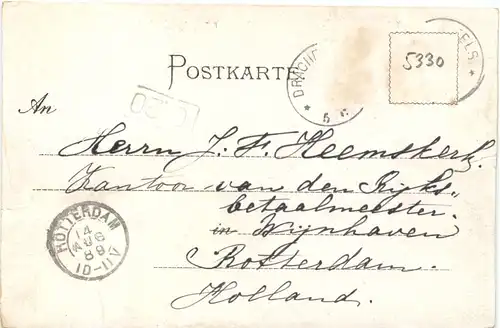 5330
POSTKARTE
An
Herrn J. F. Heemskerk.
Kantoor van den Rijks-
betaalmeester.
in Wijnhaven
Rotterdam.
Holland.
ROTTERDAM
14
AUG
89
10-11V